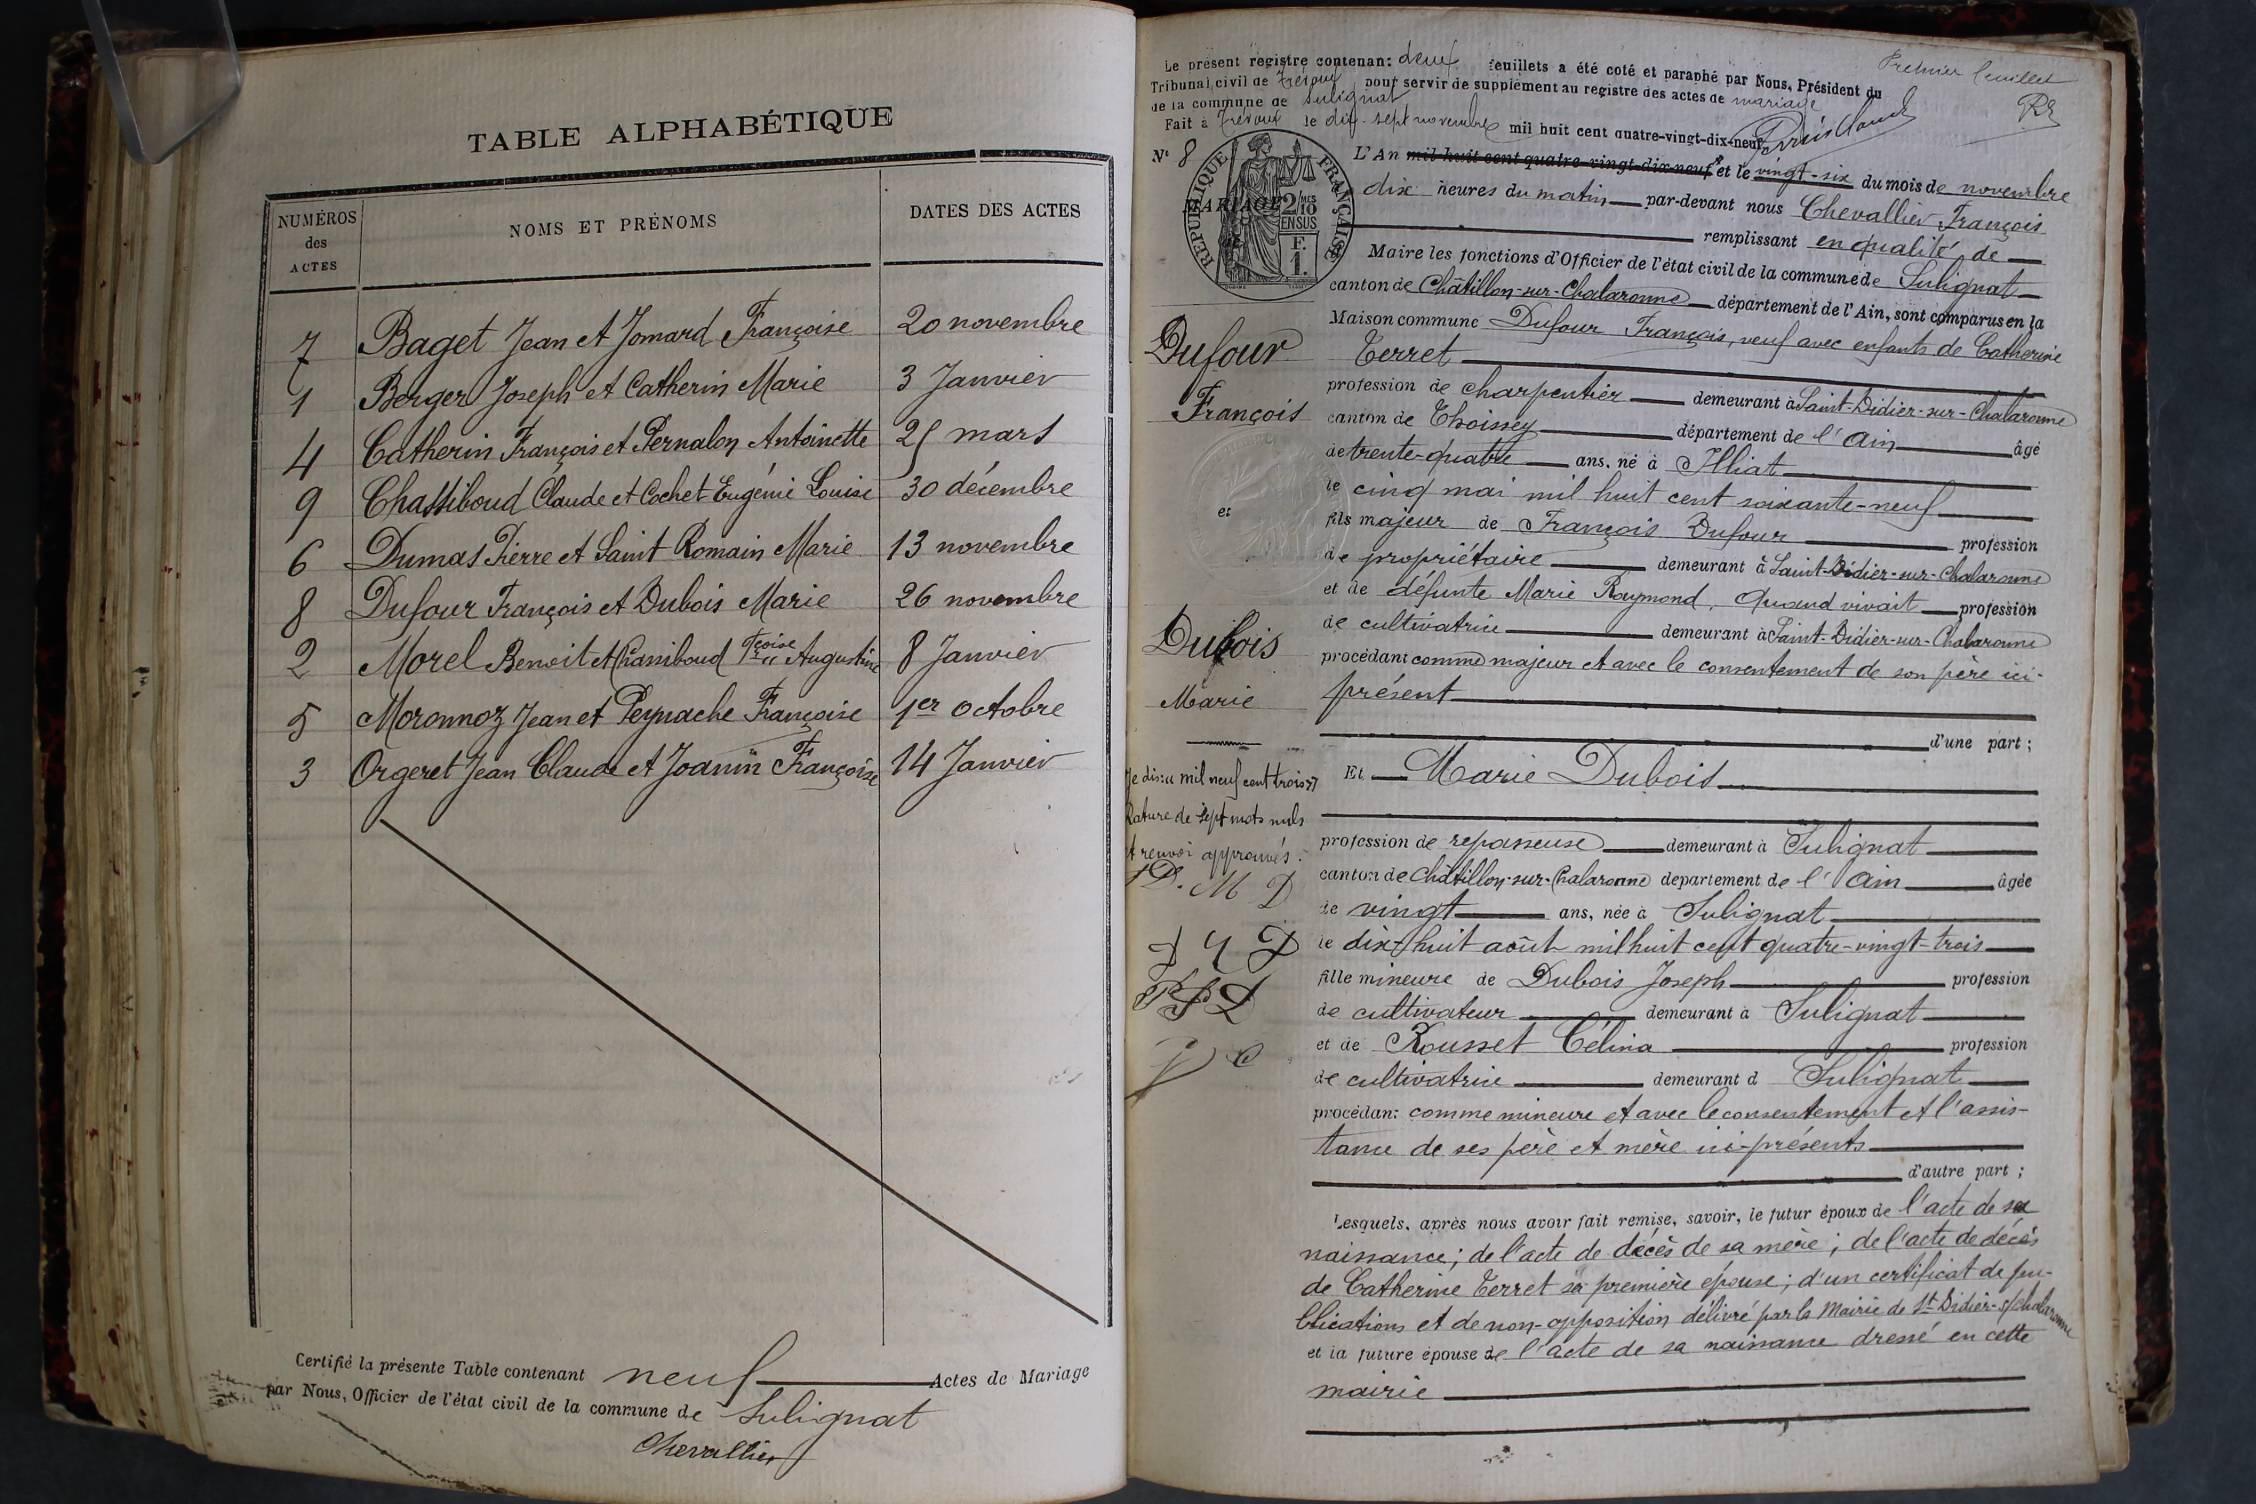 TABLE ALPHABÉTIQUE
NUMÉROS des ACTES
NOMS ET PRÉNOMS
DATES DES ACTES
7 Baget Jean et Jomard Françoise 20 novembre
1 Berger Joseph et Catherin Marie 3 Janvier
4 Catherin François et Pernalon Antoinette 25 mars
9 Chassiboud Claude et Cochet Eugénie Louise 30 décembre
6 Dumas Pierre et Saint Romain Marie 13 novembre
8 Dufour François et Dubois Marie 26 novembre
2 Morel Benoit et Chassiboud Fçoise Augustine 8 Janvier
5 Moronnoz Jean et Peynache Françoise 1er octobre
3 Orgeret Jean Claude et Joanin Françoise 14 Janvier
Certifié la présente Table contenant neuf Actes de Mariage
par Nous, Officier de l'état civil de la commune de Sulignat
Chevallier
Premier feuillet
Le présent registre contenan: deux feuillets a été coté et paraphé par Nous, Président du
Tribunal civil de Trévoux pour servir de supplément au registre des actes de mariage
de la commune de Sulignat
Fait à Trévoux le dix-sept novembre mil huit cent quatre-vingt-dix-neuf
N° 8
RÉPUBLIQUE FRANÇAISE
2/10 MES EN SUS
F. 1.
MARIAGE
DE
L'An mil huit cent quatre-vingt-dix-neuf et le vingt-six du mois de novembre
dix heures du matin par-devant nous Chevallier François
remplissant en qualité de
Maire les fonctions d'Officier de l'état civil de la commune de Sulignat
canton de Châtillon-sur-Chalaronne département de l'Ain, sont comparus en la
Maison commune Dufour François, veuf avec enfants de Catherine
Terret
Dufour
François
profession de charpentier demeurant à Saint-Didier-sur-Chalaronne
canton de Thoissey département de l'Ain âgé
de trente-quatre ans, né à Illiat
le cinq mai mil huit cent soixante-neuf
et
fils majeur de François Dufour profession
de propriétaire demeurant à Saint-Didier-sur-Chalaronne
et de défunte Marie Raymond, quand vivait profession
de cultivatrice demeurant à Saint-Didier-sur-Chalaronne
Dubois
Marie
procédant comme majeur et avec le consentement de son père ici-
présent
d'une part ;
Et Marie Dubois
Je dis: mil neuf cent trois
Rature de sept mots nuls
et renvoi approuvés.
M D
profession de repasseuse demeurant à Sulignat
canton de Châtillon-sur-Chalaronne département de l'Ain âgée
de vingt ans, née à Sulignat
le dix-huit août mil huit cent quatre-vingt-trois
fille mineure de Dubois Joseph profession
de cultivateur demeurant à Sulignat
et de Rousset Célina profession
de cultivatrice demeurant d Sulignat
procédan: comme mineure et avec le consentement et l'assis-
tance de ses père et mère ici-présents
d'autre part ;
Lesquels, après nous avoir fait remise, savoir, le futur époux de l'acte de sa
naissance ; de l'acte de décès de sa mère ; de l'acte de décès
de Catherine Terret sa première épouse ; d'un certificat de pu-
blications et de non-opposition délivré par la Mairie de St-Didier-s/Chalaronne
et la future épouse de l'acte de sa naissance dressé en cette
mairie